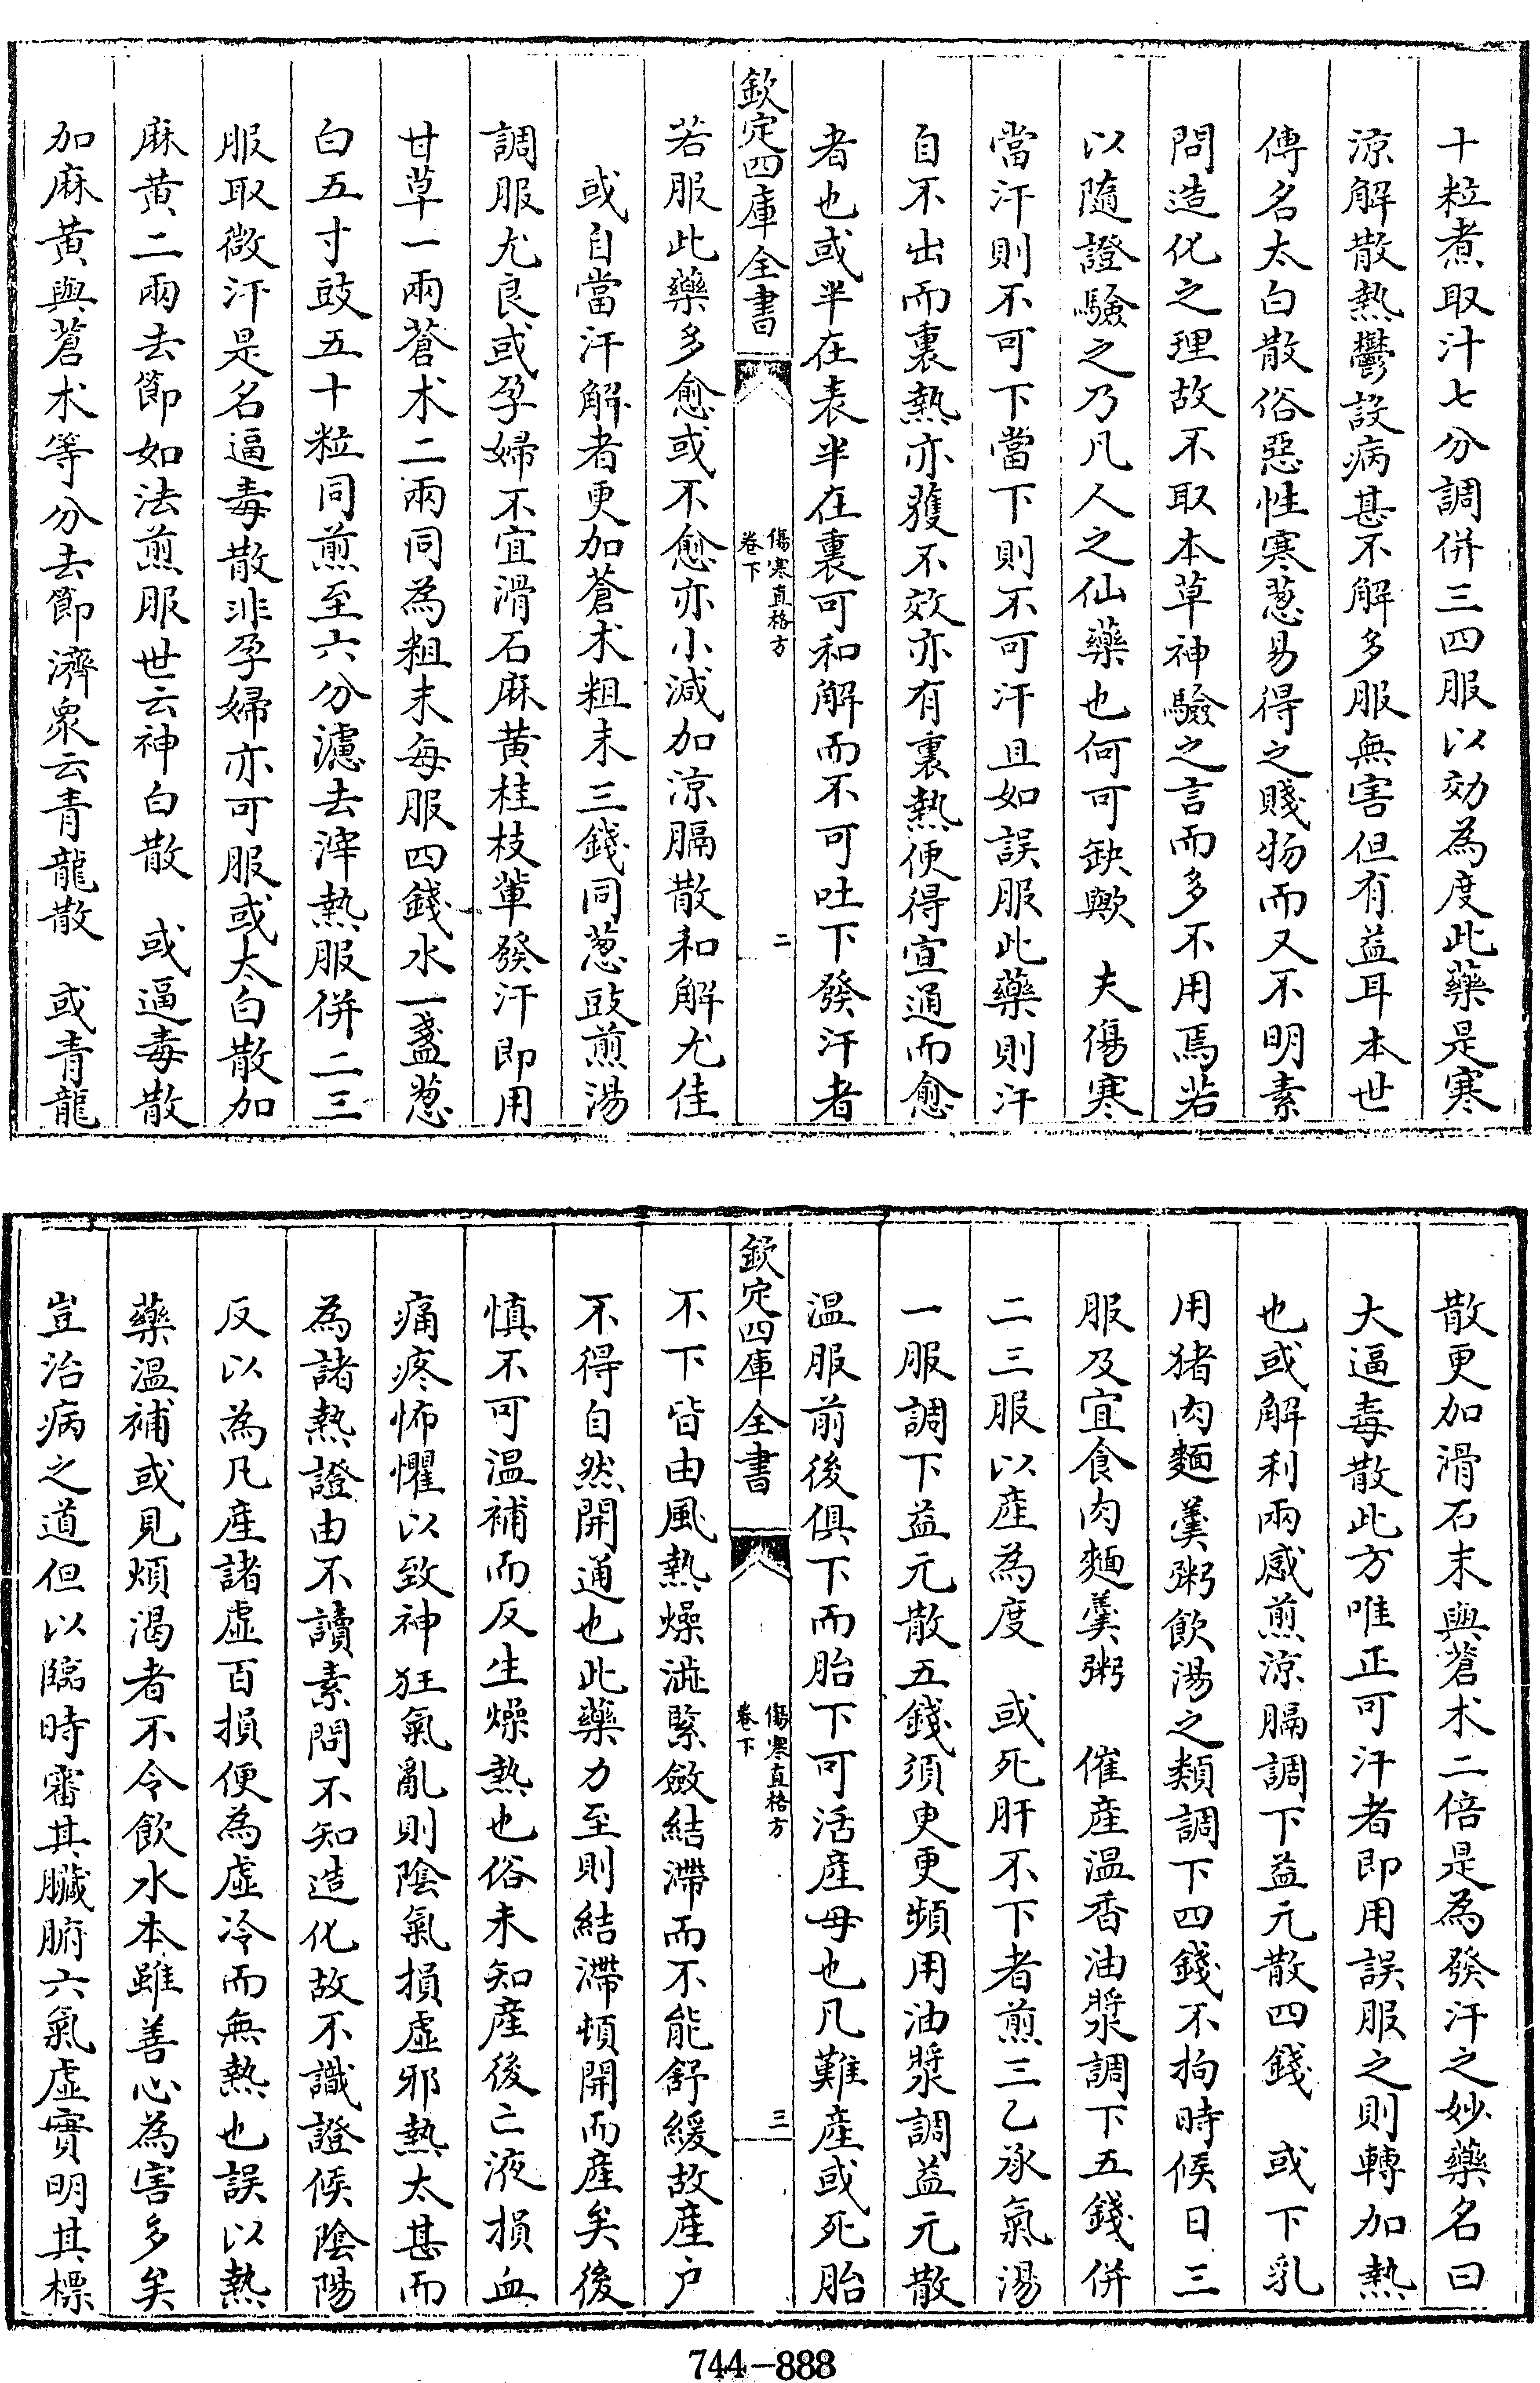 十粒煮取汁七分調併三四服以効為度此藥是寒
涼解散熱鬱設病甚不解多服無害但有益耳本世
傳名太白散俗惡性寒葱易得之賤物而又不明素
問造化之理故不取本草神驗之言而多不用焉若
以隨證驗之乃凡人之仙藥也何可缺歟　夫傷寒
當汗則不可下當下則不可汗且如誤服此藥則汗
自不出而裏熱亦獲不效亦有裏熱便得宣通而愈
者也或半在表半在裏可和解而不可吐下發汗者
欽定四庫全書
傷寒直格方
卷下
二
若服此藥多愈或不愈亦小減加涼膈散和解尤佳
或自當汗解者更加蒼术粗末三錢同葱豉煎湯
調服尤良或孕婦不宜滑石麻黄桂枝輩發汗即用
甘草一兩蒼术二兩同為粗末每服四錢水一盞葱
白五寸豉五十粒同煎至六分濾去滓熱服併二三
服取微汗是名逼毒散非孕婦亦可服或太白散加
麻黄二兩去節如法煎服世云神白散　或逼毒散
加麻黄與蒼术等分去節濟衆云青龍散　或青龍
散更加滑石末與蒼术二倍是為發汗之妙藥名曰
大逼毒散此方唯正可汗者即用誤服之則轉加熱
也或解利兩感煎涼膈調下益元散四錢　或下乳
用猪肉麵羹粥飲湯之類調下四錢不拘時候日三
服及宜食肉麵羹粥　催産温香油漿調下五錢併
二三服以産為度　或死肝不下者煎三乙承氣湯
一服調下益元散五錢須更更頻用油漿調益元散
温服前後俱下而胎下可活産母也凡難産或死胎
欽定四庫全書
傷寒直格方
卷下
三
不下皆由風熱燥澁緊斂結滯而不能舒緩故産户
不得自然開通也此藥力至則結滯頓開而産矣後
慎不可温補而反生燥熱也俗未知産後亡液損血
痛疼怖懼以致神狂氣亂則陰氣損虚邪熱太甚而
為諸熱證由不讀素問不知造化故不識證候陰陽
反以為凡産諸虚百損便為虚冷而無熱也誤以熱
藥温補或見煩渴者不令飲水本雖善心為害多矣
豈治病之道但以臨時審其臟腑六氣虚實明其標
744-888